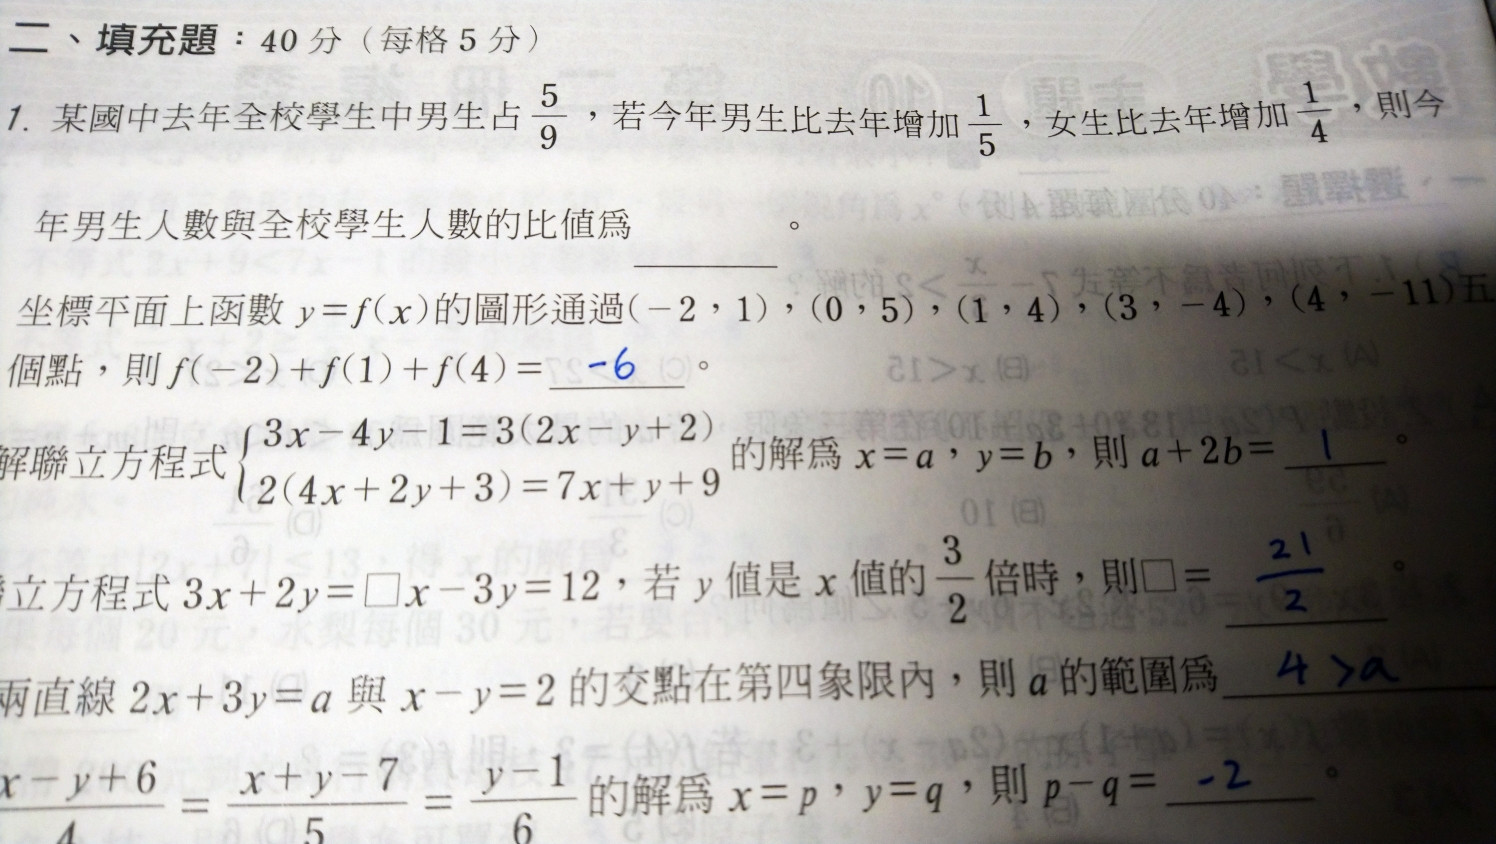 二、填充題：40 分（每格 5 分）
1. 某國中去年全校學生中男生占 5/9，若今年男生比去年增加 1/5，女生比去年增加 1/4，則今
年男生人數與全校學生人數的比值為＿＿＿。
坐標平面上函數 y=f(x)的圖形通過(−2，1)，(0，5)，(1，4)，(3，−4)，(4，−11)五
個點，則 f(−2)+f(1)+f(4)= -6 。
解聯立方程式{3x−4y−1=3(2x−y+2)
2(4x+2y+3)=7x+y+9 的解為 x=a，y=b，則 a+2b= 1 。
立方程式 3x+2y=□x−3y=12，若 y 值是 x 值的 3/2 倍時，則□= 21/2 。
兩直線 2x+3y=a 與 x−y=2 的交點在第四象限內，則 a 的範圍為 4>a
x−y+6/4 = x+y−7/5 = y−1/6 的解為 x=p，y=q，則 p−q= -2 。